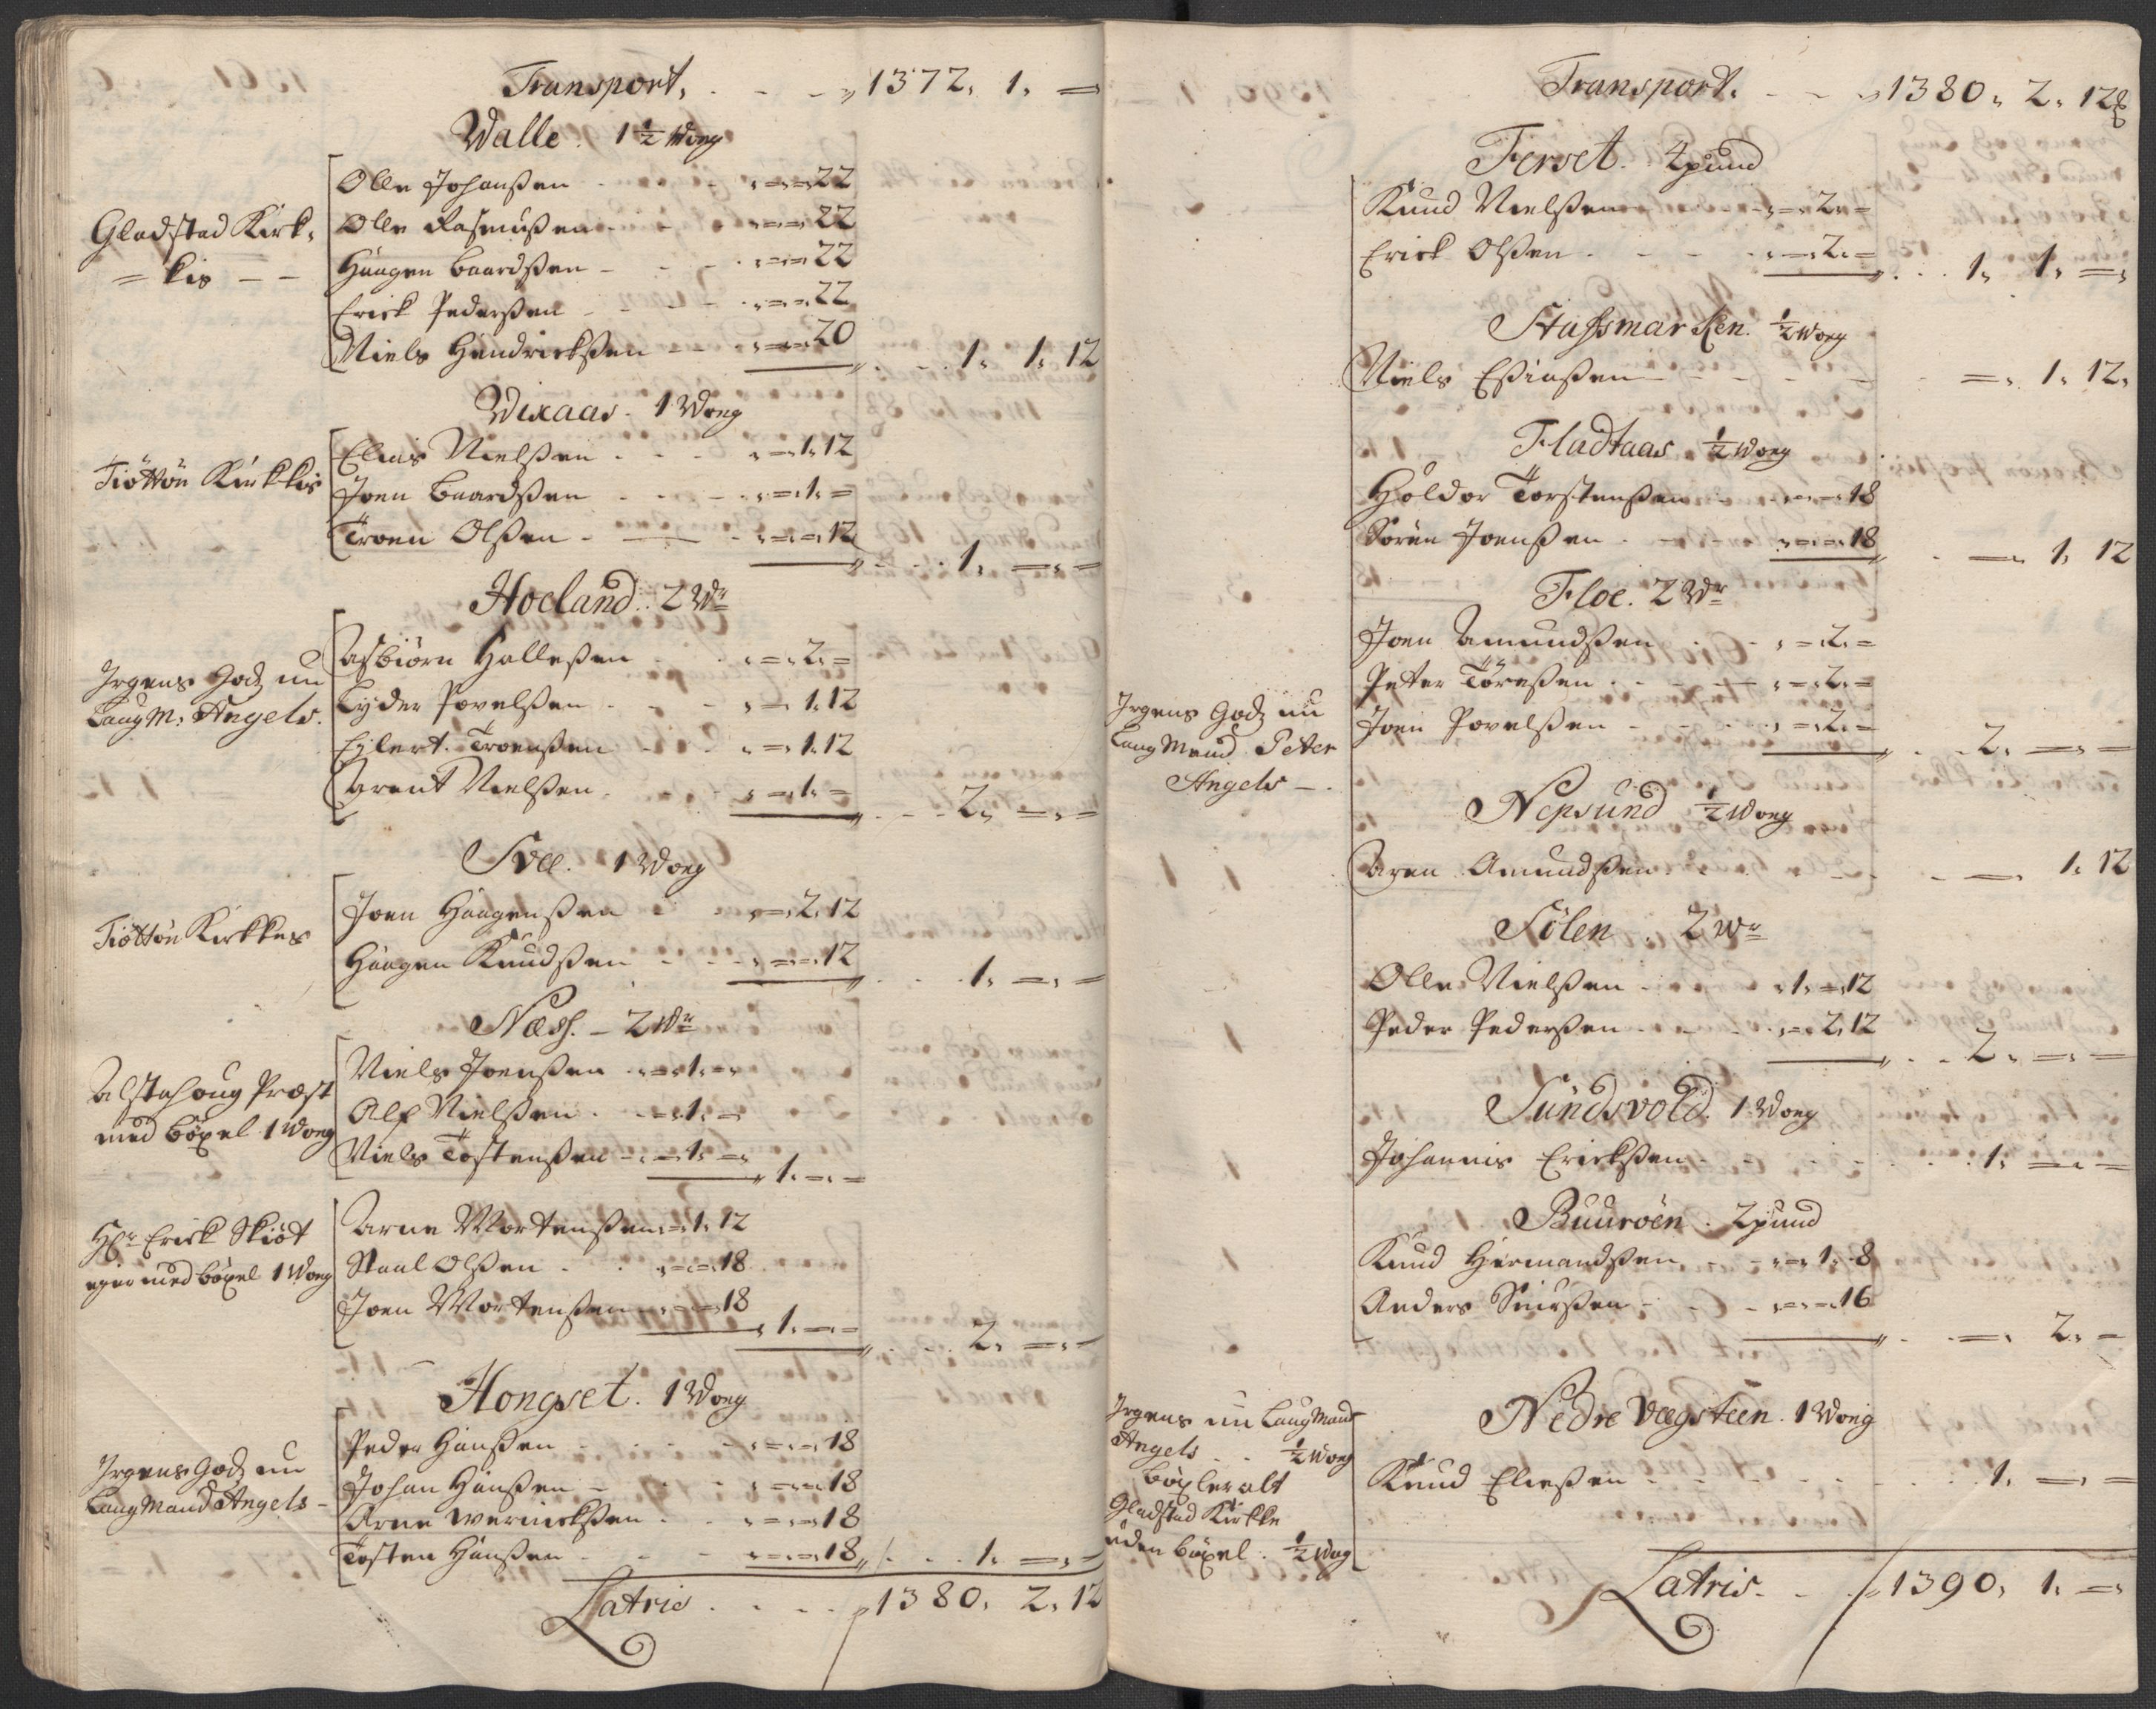 Transport, - - - 1372. 1. =
Walle. 1½ Woeg
Olle Johanßen - - - 22
Gladstad Kirk-
= kis - -
Olle Rasmußen - - - 22
Haagen Baardßen - - - 22
Erick Pederßen - - - 22
Niels Hendrickßen - - - 20
1. 1. 12
Wixaas. 1 Woeg
Tiøttøe Kirkkis
Elias Nielßen - - - 1. 12
Joen Baardßen - - - 1. =
Troen Olßen - - - 12
1. = . =
Hoeland. 2 Wr
Irgens Godz nu
Laugm: Angels.
Asbiørn Halleßen - - 2. =
Lyder Povelßen - - 1. 12
Eylert Troenßen - - 1. 12
Arent Nielßen - - 1. =
2. = . =
Søll. 1 Woeg
Tiøttøe Kirkkes
Joen Haagenßen - - 2. 12
Haagen Knudßen - - 12
1. = . =
Næss. - 2 Wr
Alstahoug Præst
med bøxel 1 Woeg
Niels Joenßen - = . 1. =
Alf Nielßen - = . 1. =
Niels Tostenßen - = . 1. =
1. = . =
Hr. Erick Skiøt
eger med bøxel 1 Woeg
Arne Mortenßen = . 1. 12
Staal Olßen - = . = . 18
Joen Mortenßen = . = . 18
1. = . =
2. = . =
Hongset. 1 Woeg
Irgens Godz nu
Laugmand Angels -
Peder Hanßen - - - 18
Johan Hanßen - - - 18
Arne Wernickßen - - 18
Tosten Hanßen - - - 18
1. = . =
Latris - - - 1380. 2. 12
Transport. - - 1380. 2. 12 ß
Ferset. 2 pund
Knud Nielßen - - = . 2. =
Erick Olßen - - = . 2. =
1. 1. =
Stassmarken. ½ Woeg
Niels Eßiaßen - - - = . 1. 12.
Fladtaas ½ Woeg
Holdor Torstenßen - - = . = . 18
Søren Joenßen - - = . = . 18
= . 1. 12
Floe. 2 Wr
Irgens Godz nu
Laug Mand Peter
Angels -
Joen Amundßen - - = . 2. =
Peter Tøreßen - - = . 2. =
Joen Povelßen - - = . 2. =
2. = . =
Nepsund ½ Woeg
Aren Amundßen - - - = . 1. 12
Sølen . 2 Wr
Olle Nielßen - - 1. = . 12
Peder Pederßen - - = . 2. 12
2. = . =
Sundsvold. 1 Woeg
Johannis Erickßen - - 1. = . =
Buurøen. 2 pund
Knud Hermandßen - - = . 1. 8
Anders Siurßen - - = . = . 16
= . 2. =
Nedre Vægsteen. 1 Woeg
Irgens nu Laug Mand
Angels - - ½ Woeg
bøxler alt
Gladstad Kirkke
uden bøxel. ½ Wog
Knud Eließen - - - 1. = . =
Latris - - 1390. 1. =